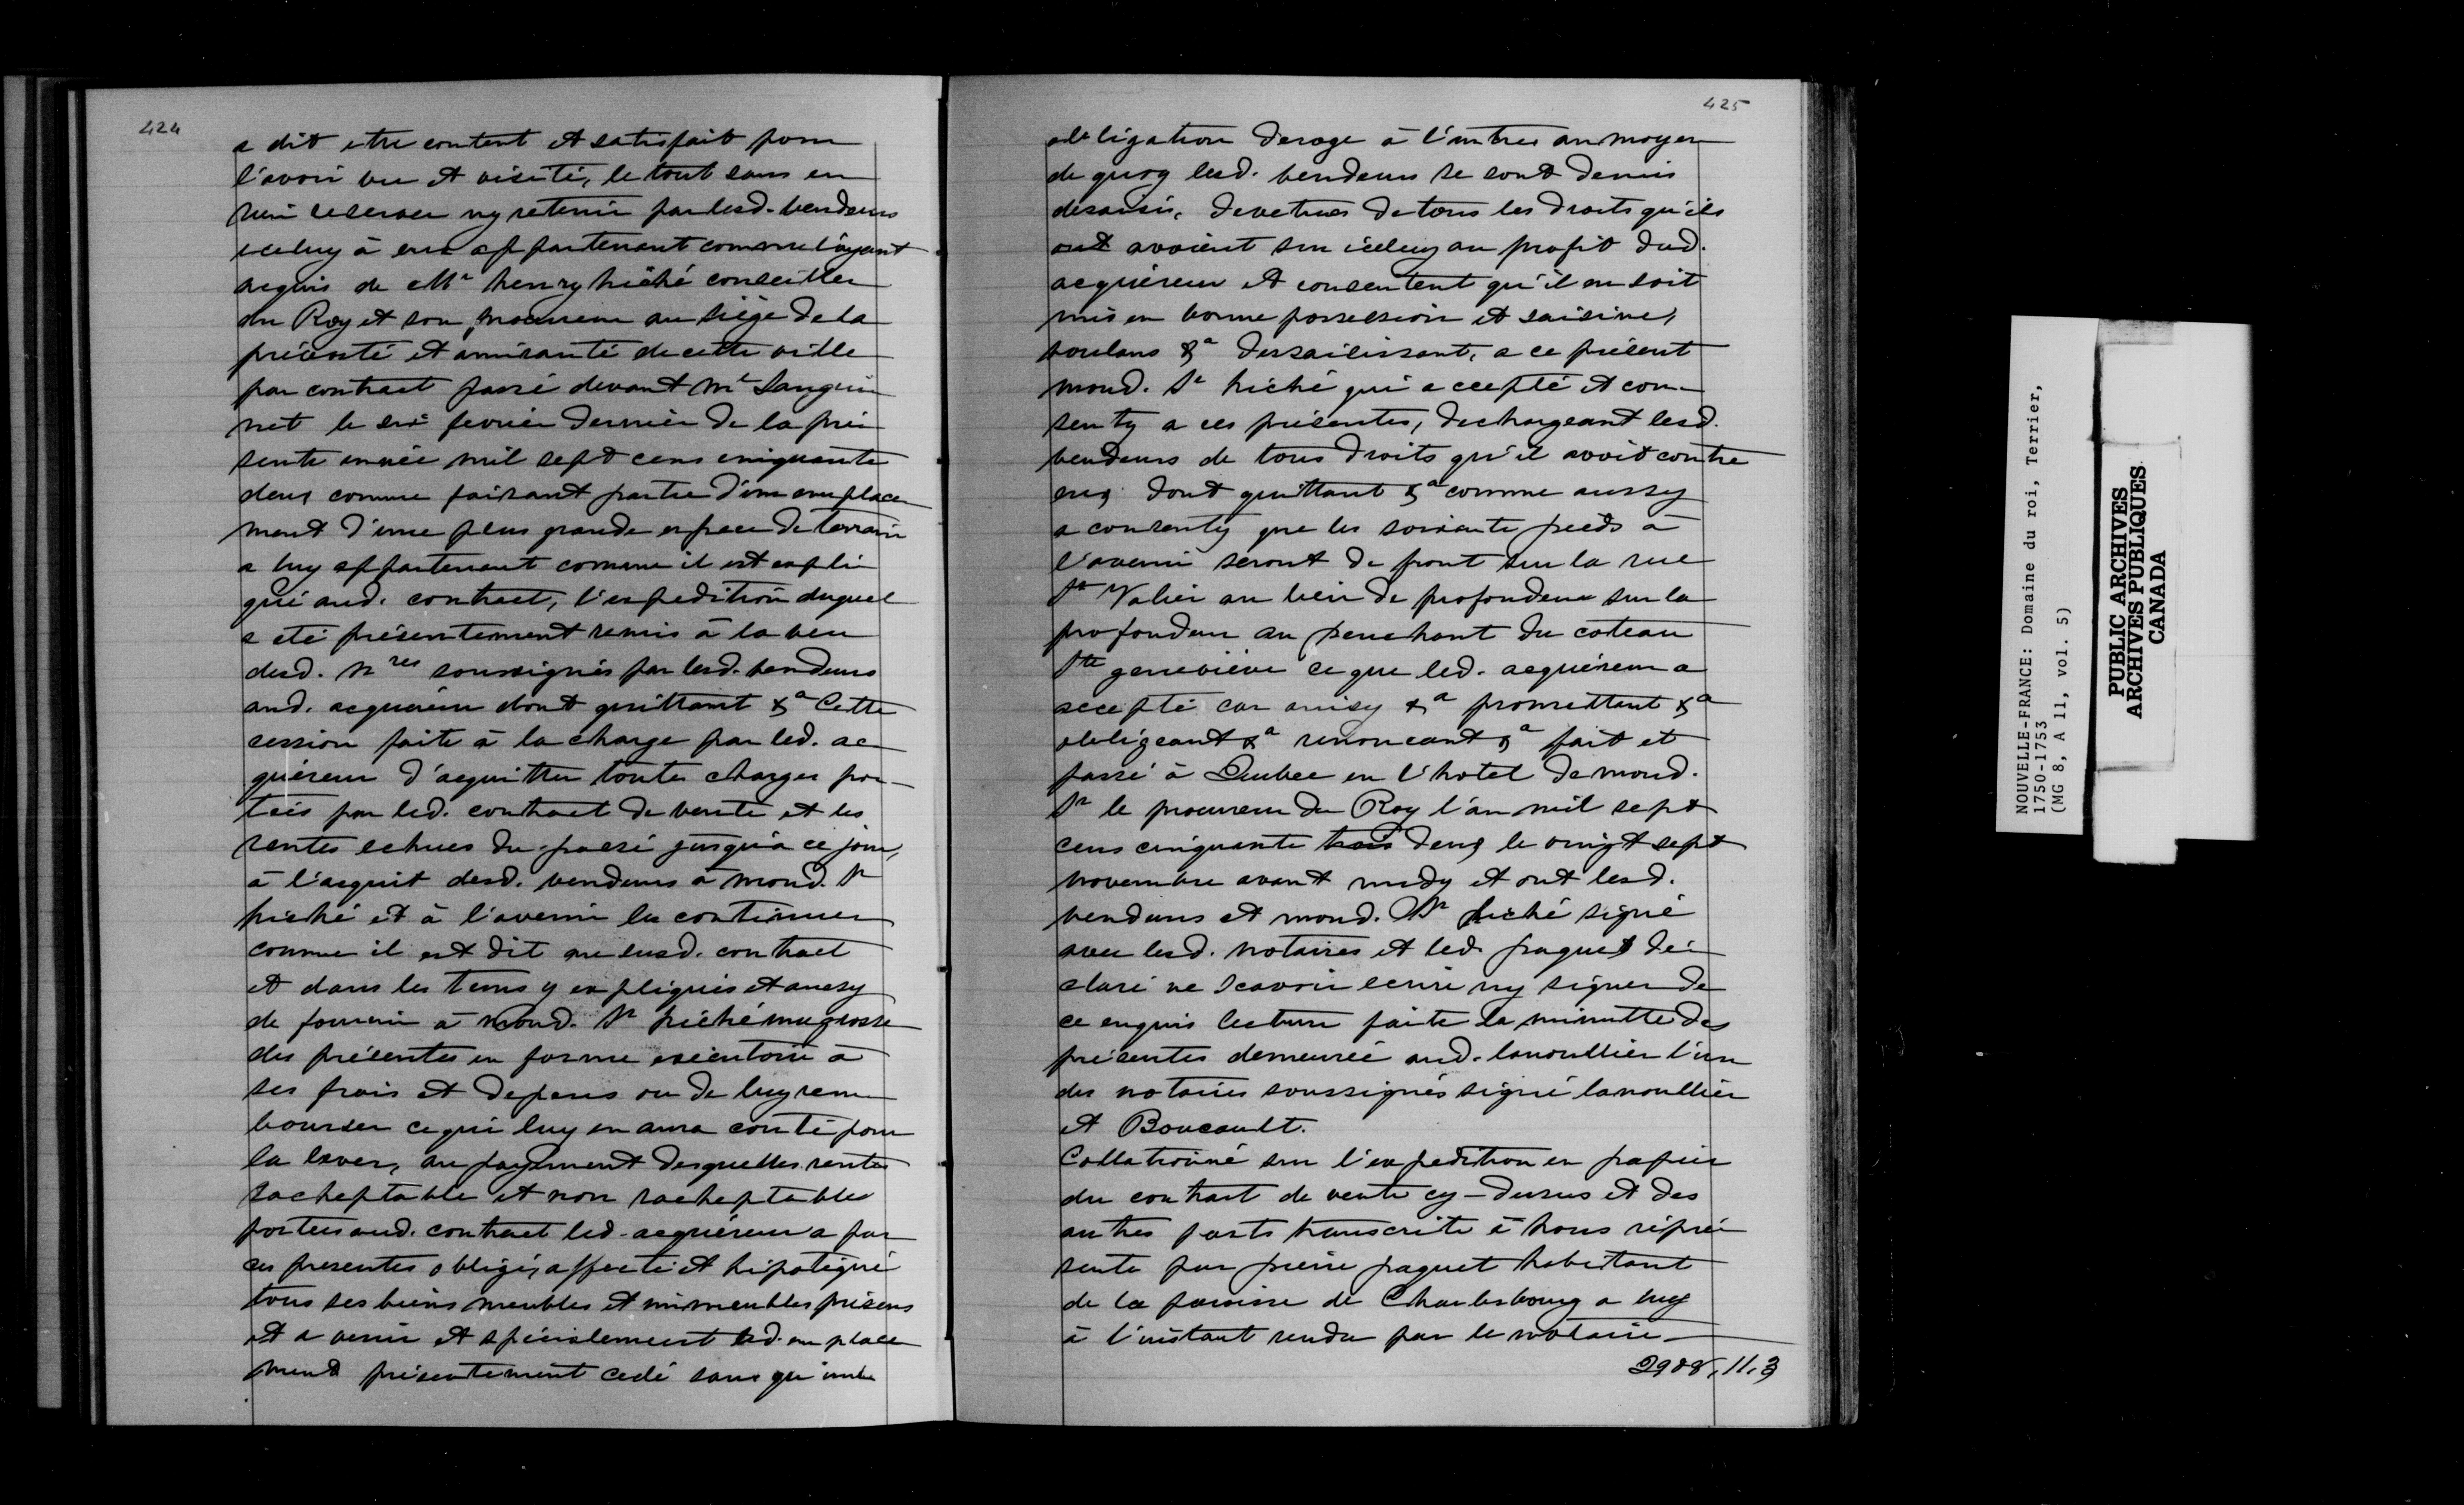 424
a dit etre content et satisfait pour
l'avoir vu et visité, le tout sans en
rien reserver ny retenir par lesd. vendeurs
iceluy à eux appartenant comme l'ayant
acquis de Me henry hiché conseiller
du Roy et son procureur au siège de la
prévosté et amirauté de cette ville
par contract passé devant Me Sangui
net le six fevrier dernier de la pré
sente année mil sept cens cinquante
deux comme faisant partie d'un emplace
ment d'une plus grande espace de terrain
a luy appartenant comme il est expli
qué aud. contract, l'expedition duquel
a eté présentement remis à la vue
desd. nres soussignés par lesd. vendeurs
aud. acquéreur dont quittant &a Cette
cession faite à la charge par led. ac
quéreur d'acquitter toutes charges por-
tées par led. contract de vente et les
rentes echues du passé jusqu'à ce jour,
à l'acquit desd. vendeurs à mond. Sr
hiché et à l'avenir les continuer
comme il est dit au susd. contract
et dans les tems y expliqués et aussy
de fournir à mond. Sr hiché une grosse
des présentes en forme exécutoire à
ses frais et depens ou de luy rem
bourser ce qui luy en aura couté pour
la lever, au payement desquelles rentes
racheptable et non racheptables
portées aud. contract led. acquéreur a par
ces presentes obligé, affecté et hipotequé
tous ses biens meubles et immeubles présens
et a venir et spécialement led. emplace
ment présentement cedé sans qu'une
425
obligation deroge à l'autres au moyen
de quoy lesd. vendeurs se sont demis
desaisis, devetues de tous les droits qu'ils
ont avoient sur iceluy au profit dud.
acquéreur et consentent qu'il en soit
mis en bonne possession et saisine,
voulans &a dessaisissant, a ce présent
mond. Sr hiché qui a accepté et con-
senty a ces présentes, dechargeant lesd.
vendeurs de tous droits qu'il avoit contre
eux dont quittant &a comme aussy
a consenty que les soixante pieds à
l'avenir seront de front sur la rue
St Valier au lieu de profondeur sur la
profondeur au penchant du coteau
Ste geneviève ce que led. acquéreur a
accepté car ainsy &a promettant &a
obligeant &a renonçant &a fait et
passé à Quebec en l'hotel de mond.
Sr le procureur du Roy l'an mil sept
cens cinquante trois deux le vingt sept
novembre avant midy et ont lesd.
vendeurs et mond. Sr hiché signé
avec lesd. notaires et led. paquet dé
claré ne scavoir ecrire ny signer de
ce enquis lecture faite la minutte des
présentes demeurée aud. lanoullier l'un
des notaires soussignés signé lanoullier
et Boucault.
Collationné sur l'expedition en papier
du contract de vente cy-dessus et des
autres parts transcrite à nous repré
senté par pierre paquet habitant
de la paroisse de Charlesbourg a luy
à l'instant rendu par le notaire
2988, 11, 3
NOUVELLE-FRANCE: Domaine du roi, Terrier,
1750-1753
(MG 8, A 11, vol. 5)
PUBLIC ARCHIVES
ARCHIVES PUBLIQUES
CANADA